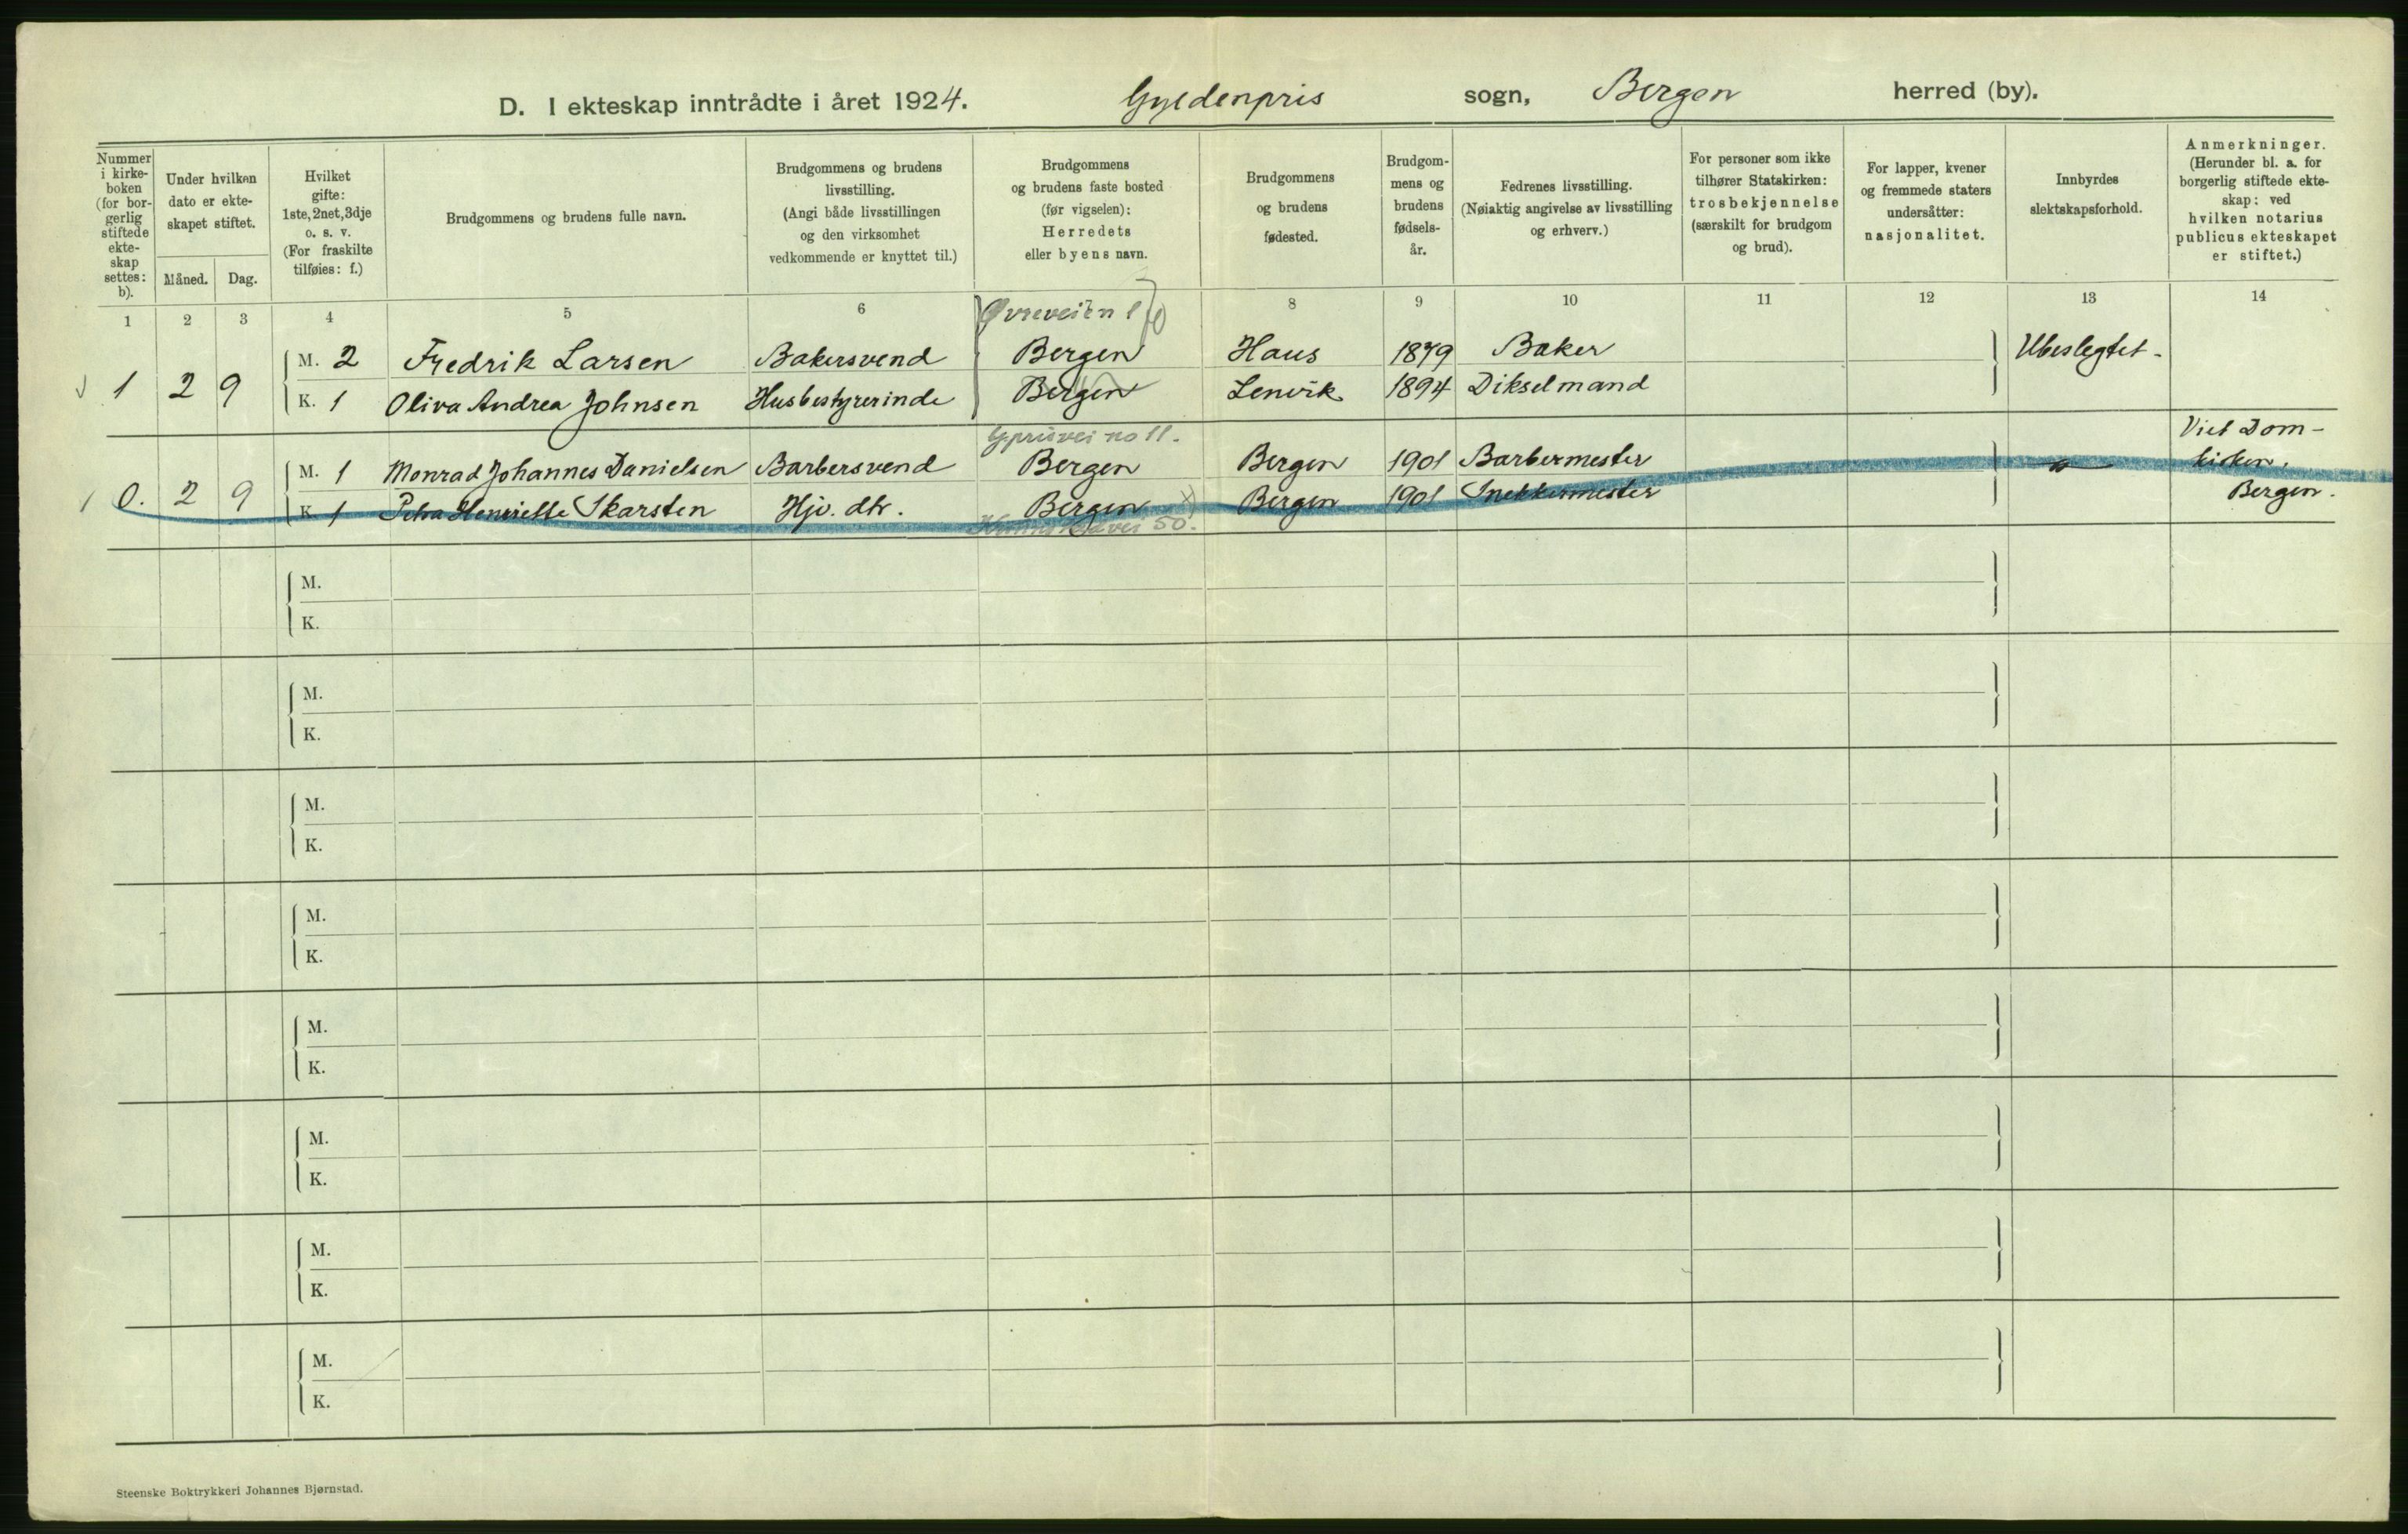 D. I ekteskap inntrådte i året 1924. Gyldenpris sogn, Bergen herred (by).
Nummer
i kirke-
boken
(for bor-
gerlig
stiftede
ekte-
skap
settes:
b).
Under hvilken
dato er ekte-
skapet stiftet.
Måned. Dag.
Hvilket
gifte:
1ste, 2net, 3dje
o. s. v.
(For fraskilte
tilføies: f.)
Brudgommens og brudens fulle navn.
Brudgommens og brudens
livsstilling.
(Angi både livsstillingen
og den virksomhet
vedkommende er knyttet til.)
Brudgommens
og brudens faste bosted
(før vigselen):
Herredets
eller byens navn.
Brudgommens
og brudens
fødested.
Brudgom-
mens og
brudens
fødsels-
år.
Fedrenes livsstilling.
(Nøiaktig angivelse av livsstilling
og erhverv.)
For personer som ikke
tilhører Statskirken:
trosbekjennelse
(særskilt for brudgom
og brud).
For lapper, kvener
og fremmede staters
undersåtter:
nasjonalitet.
Innbyrdes
slektskapsforhold.
Anmerkninger.
(Herunder bl. a. for
borgerlig stiftede ekte-
skap: ved
hvilken notarius
publicus ekteskapet
er stiftet.)
1 2 3 4 5 6 8 9 10 11 12 13 14
Øvreveien
1 2 9
M. 2 Fredrik Larsen Bakersvend Bergen Haus 1879 Baker Ubeslegtet-
K. 1 Oliva Andrea Johnsen Husbestyrerinde Bergen Lenvik 1894 Dikselmand
Gprisvei no 11.
Viet Dom-
0. 2 9
M. 1 Monrad Johannes Danielsen Barbersvend Bergen Bergen 1901 Barbermester kirken,
K. 1 Petra Henriette Skarsten Hjv. dtr. Bergen Bergen 1901 Snekkermester Bergen.
vei 50.
M.
K.
M.
K.
M.
K.
M.
K.
M.
K.
M.
K.
M.
K.
M.
K.
Steenske Boktrykkeri Johannes Bjørnstad.